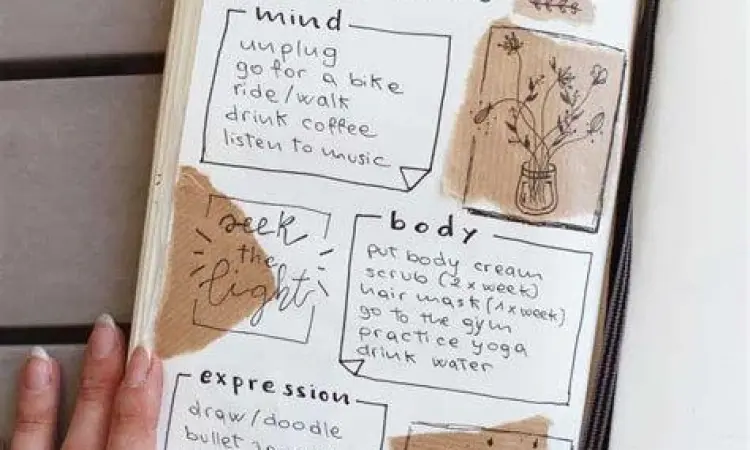 mind
unplug
go for a bike
ride/walk
drink coffee
listen to music
seek
the
light
body
put body cream
scrub (2 x week)
hair mask (1 x week)
go to the gym
practice yoga
drink water
expression
draw/doodle
bullet